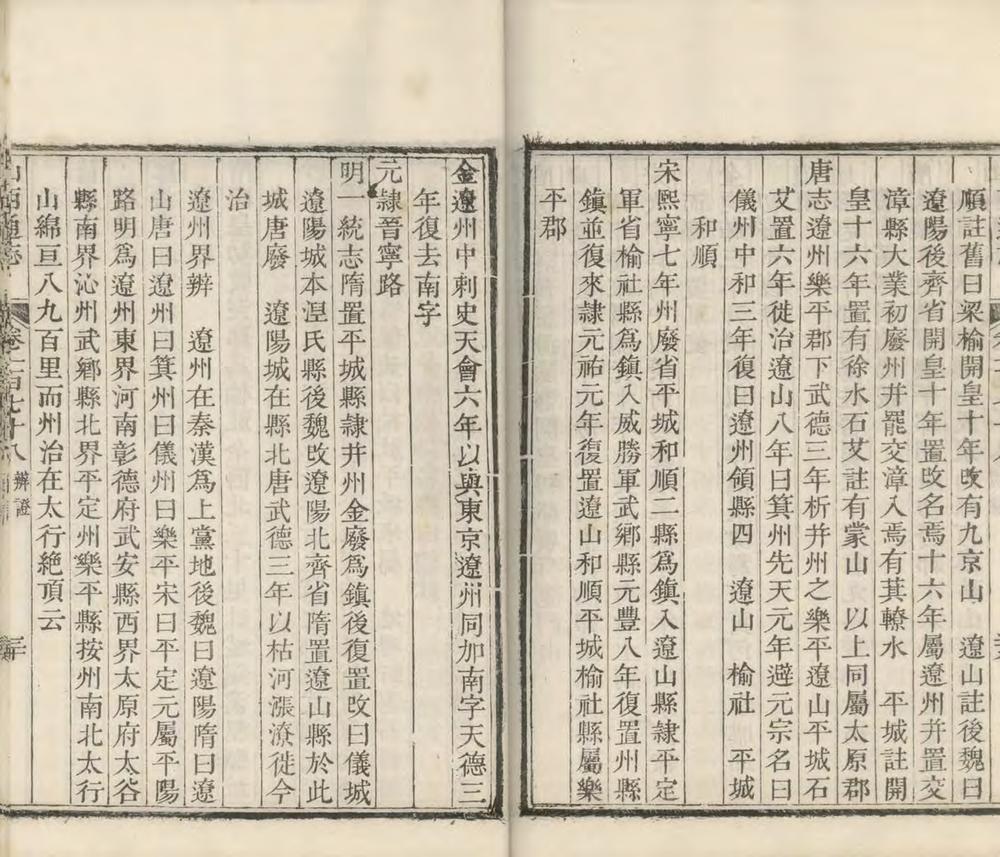 順註舊曰梁榆開皇十年改有九京山　遼山註後魏曰
遼陽後齊省開皇十年置改名焉十六年屬遼州并置交
漳縣大業初廢州并罷交漳入焉有萁轑水　平城註開
皇十六年置有徐水石艾註有蒙山　以上同屬太原郡
唐志遼州樂平郡下武德三年析并州之樂平遼山平城石
艾置六年徙治遼山八年曰箕州先天元年避元宗名曰
儀州中和三年復曰遼州領縣四　遼山　榆社　平城
和順
宋熙寧七年州廢省平城和順二縣爲鎮入遼山縣隸平定
軍省榆社縣爲鎮入威勝軍武鄉縣元豐八年復置州縣
鎮並復來隸元祐元年復置遼山和順平城榆社縣屬樂
平郡
金遼州中刺史天會六年以與東京遼州同加南字天德三
年復去南字
元隸晉寧路
明一統志隋置平城縣隸并州金廢爲鎮後復置改曰儀城
遼陽城本涅氏縣後魏改遼陽北齊省隋置遼山縣於此
城唐廢　遼陽城在縣北唐武德三年以枯河漲潦徙今
治
遼州界辨　遼州在秦漢爲上黨地後魏曰遼陽隋曰遼
山唐曰遼州曰箕州曰儀州曰樂平宋曰平定元屬平陽
路明爲遼州東界河南彰德府武安縣西界太原府太谷
縣南界沁州武鄉縣北界平定州樂平縣按州南北太行
山綿亘八九百里而州治在太行絶頂云
山西通志　卷一百七十八　辨證　三